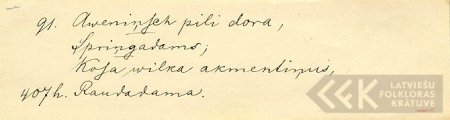 91. Aweniņsch pili dora,
Springadams;
Koſa wilka akmentiņus,
407h. Raudadama.
LATVIEŠU
FOLKLORAS
KRATUVE